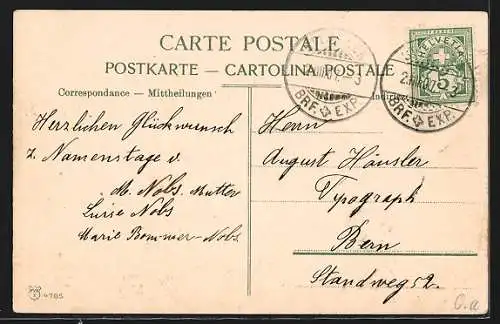 CARTE POSTALE
POSTKARTE – CARTOLINA POSTALE
Correspondance – Mittheilungen
HELVETIA
5
BRF. EXP.
BRF. EXP.
Herzlichen Glückwunsch
z. Namenstage v.
M. Nobs. Mutter
Luise Nobs
Marie Bommer-Nobs.
Herrn
August Häusler
Typograph
Bern
Standweg 52.
4785